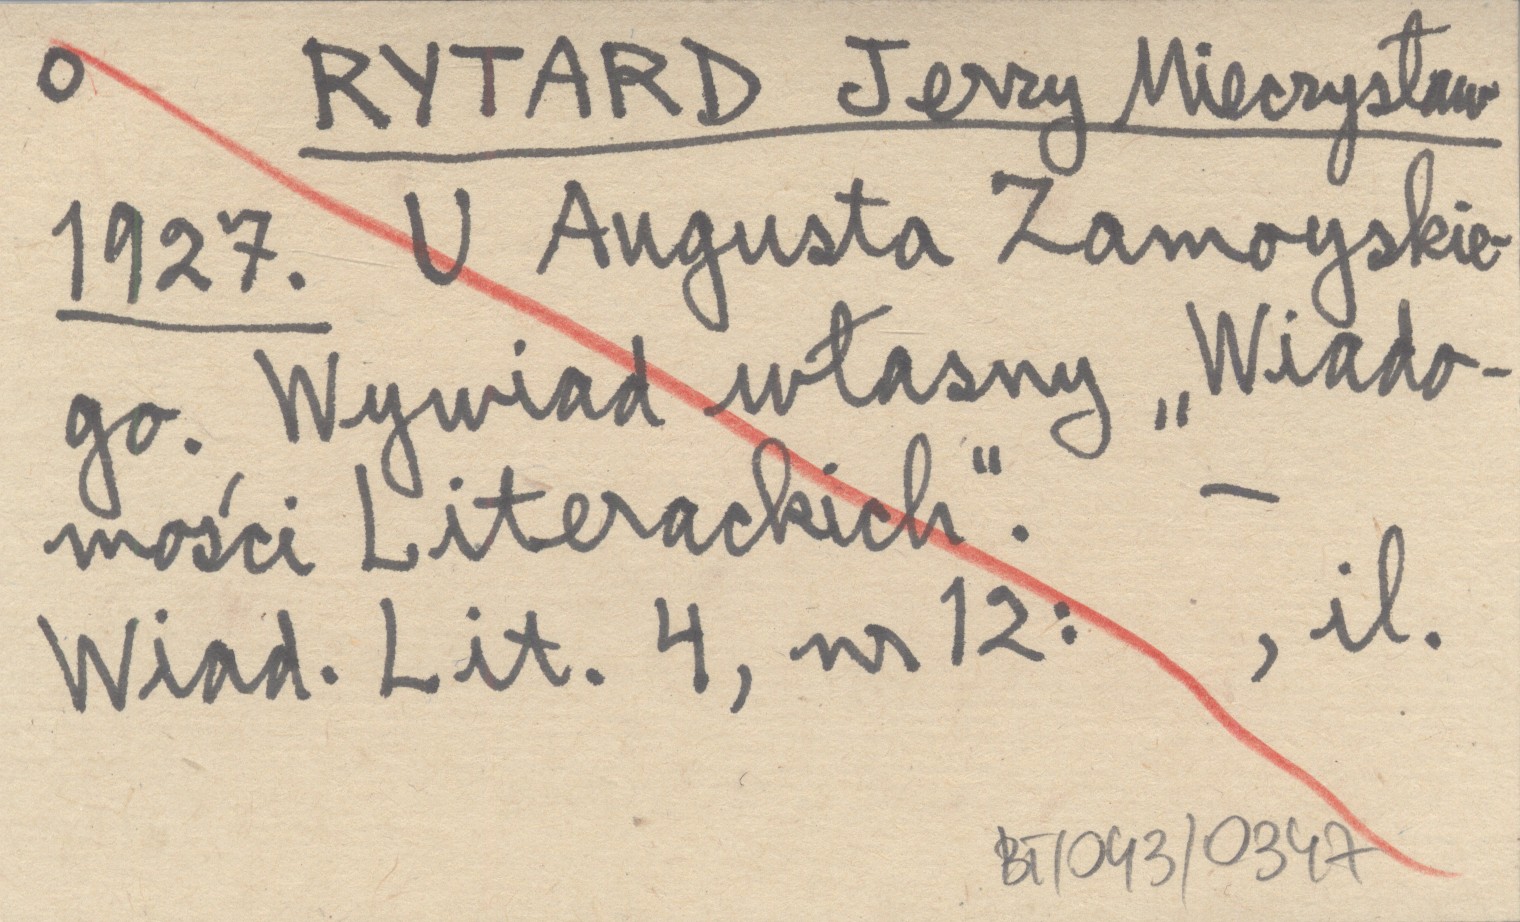 o RYTARD Jerzy Mieczysław
1927. U Augusta Zamoyskie-
go. Wywiad własny „Wiado-
mości Literackich". —
Wiad. Lit. 4, nr 12: , il.
BT/043/0347